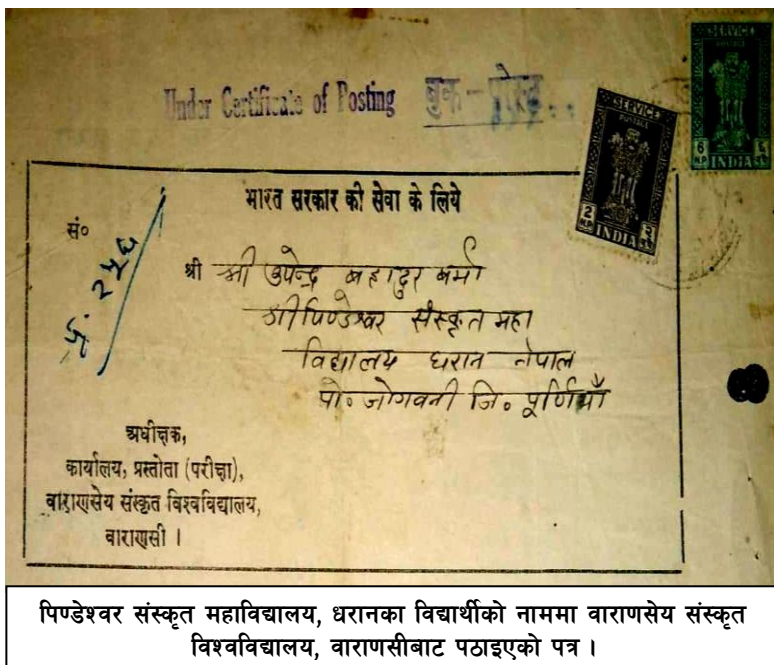 SERVICE
POSTAGE
6 N.P. ६ न.पै.
INDIA
Under Certificate of Posting बुक-पोस्ट
SERVICE
POSTAGE
2 N.P. २ न.पै.
INDIA
भारत सरकार की सेवा के लिये
सं०
क्र. २५६
श्री श्री उपेन्द्र बहादुर बर्मा
श्रीपिण्डेश्वर संस्कृत महा
विद्यालय धरान नेपाल
पो० जोगवनी जि० पूर्णियाँ
अधीक्षक,
कार्यालय, प्रस्तोता (परीक्षा),
वाराणसेय संस्कृत विश्वविद्यालय,
वाराणसी ।
पिण्डेश्वर संस्कृत महाविद्यालय, धरानका विद्यार्थीको नाममा वाराणसेय संस्कृत
विश्वविद्यालय, वाराणसीबाट पठाइएको पत्र ।